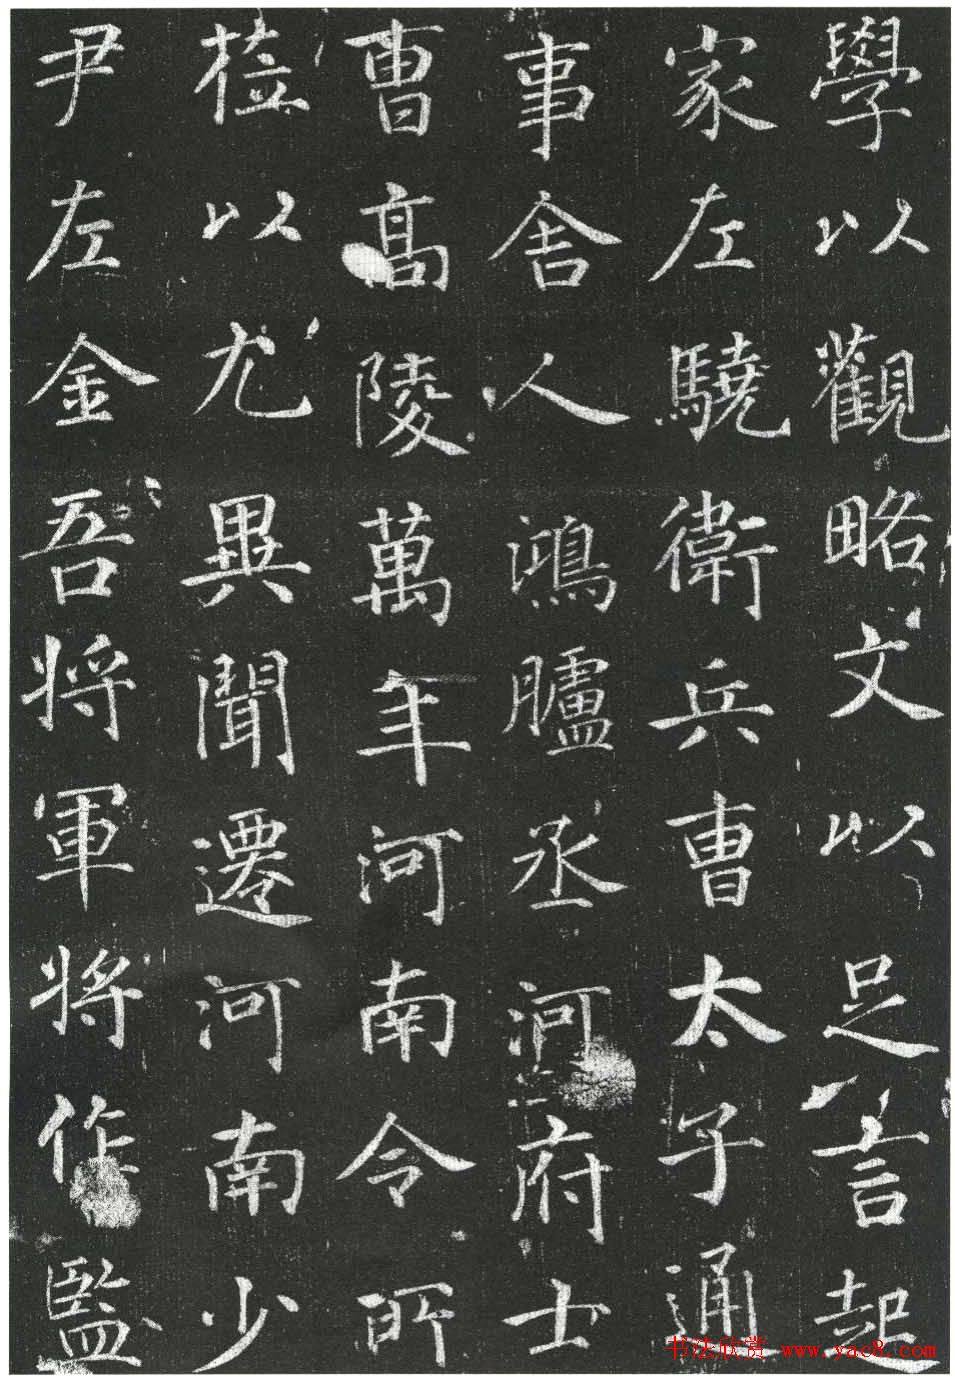 學以觀略文以足言起
家左驍衛兵曹太子通
事舍人鴻臚丞河南府士
曹高陵萬年河南令所
莅以尤異聞遷河南少
尹左金吾將軍將作監
书法欣赏 www.yac8.com